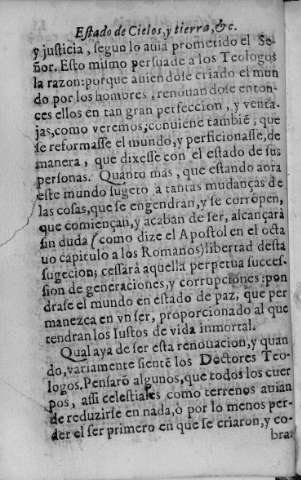 Estado de Cielos, y tierra, &c.
y justicia, seguo lo auia prometido el Se-
ñor. Esto mismo persuade a los Teologos
la razon: porque auiendose criado el mun
do por los hombres, renouandose enton-
ces ellos en tan gran perfeccion, y venta-
jas, como veremos; conuiene tambiē, que
se reformasse el mundo, y perficionasse, de
manera, que dixesse con el estado de sus
personas. Quanto mas, que estando aora
este mundo sugeto a tantas mudanças de
las cosas, que se engendran, y se corrōpen,
que comiençan, y acaban de ser, alcançarà
sin duda (como dize el Apostol en el octa
uo capitulo a los Romanos) libertad desta
sugecion; cessarà aquella perpetua succes-
sion de generaciones, y corrupciones: pon
drase el mundo en estado de paz, que per
manezca en vn ser, proporcionado al que
tendran los Iustos de vida inmortal.
Qual aya de ser esta renouacion, y quan
do, variamente sientē los Doctores Teo-
logos. Pensarō algunos, que todos los cuer
pos, assi celestiales como terrenos auian
de reduzirse en nada, o por lo menos per-
der el ser primero en que se criaron, y co-
bra-